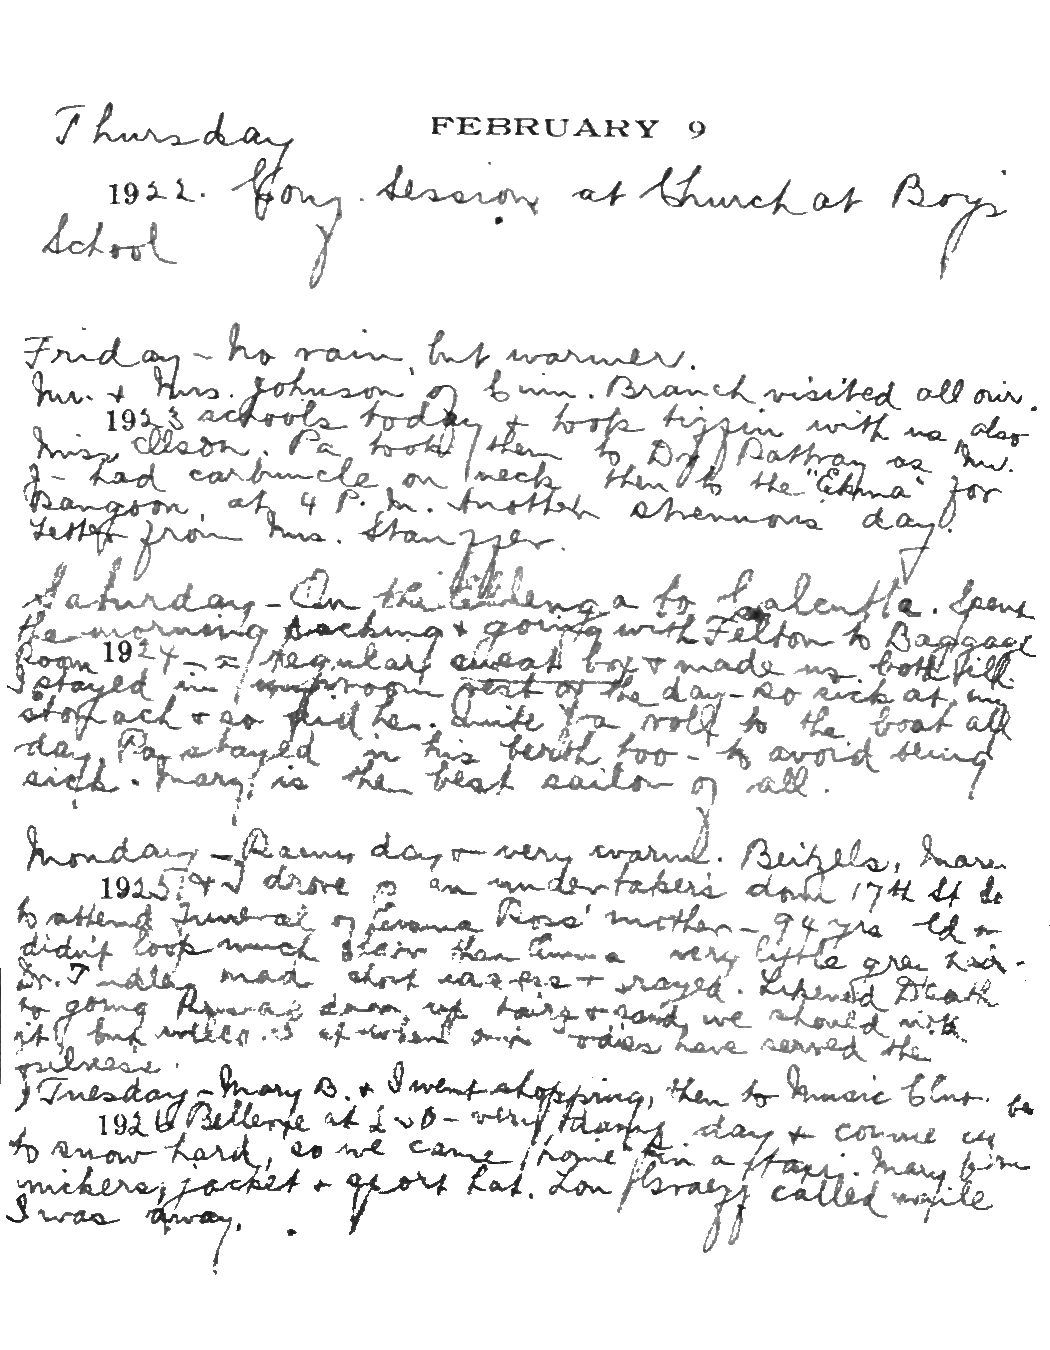 FEBRUARY 9
Thursday
1922. Cong. Session at Church at Boys
School
Friday - No rain, but warmer.
Mr. & Mrs. Johnson of Cinn. Branch visited all our
1923 schools today & took tiffin with us also
Miss Illson. Pa took them to Dr. Rattray as Mr.
J- had carbuncle on neck then to the "Ekma" for
Rangoon, at 4 P.M. Another strenuous day.
Letter from Mrs.
Saturday - On the to Calcutta. Spent
the morning packing & going with Felton to Baggage
Room 1924 - a regular sweat box & made us both ill.
I stayed in my room rest of the day - so sick at my
stomach & so did he. Quite a roll to the boat all
day. Pa stayed in his berth too - to avoid being
sick. Mary is the best sailor of all.
Monday - Rainy day & very warm. Beitzels, Mary
1925 & I drove to an undertaker's down 17th St So
to attend Funeral of Emma Ross' mother - 94 yrs old &
didn't look much older than Emma very little grey hair.
Dr. made short & prayed. Likened Death
to going up stairs & said, we should not
it, but when our bodies have served the

Tuesday - Mary B. & I went shopping, then to Music Club.
1926 Bellevue at 2 - very day & be
to snow hard, so we came home in a taxi. Mary
nickers, jacket & sport hat. Lou called while
I was away.